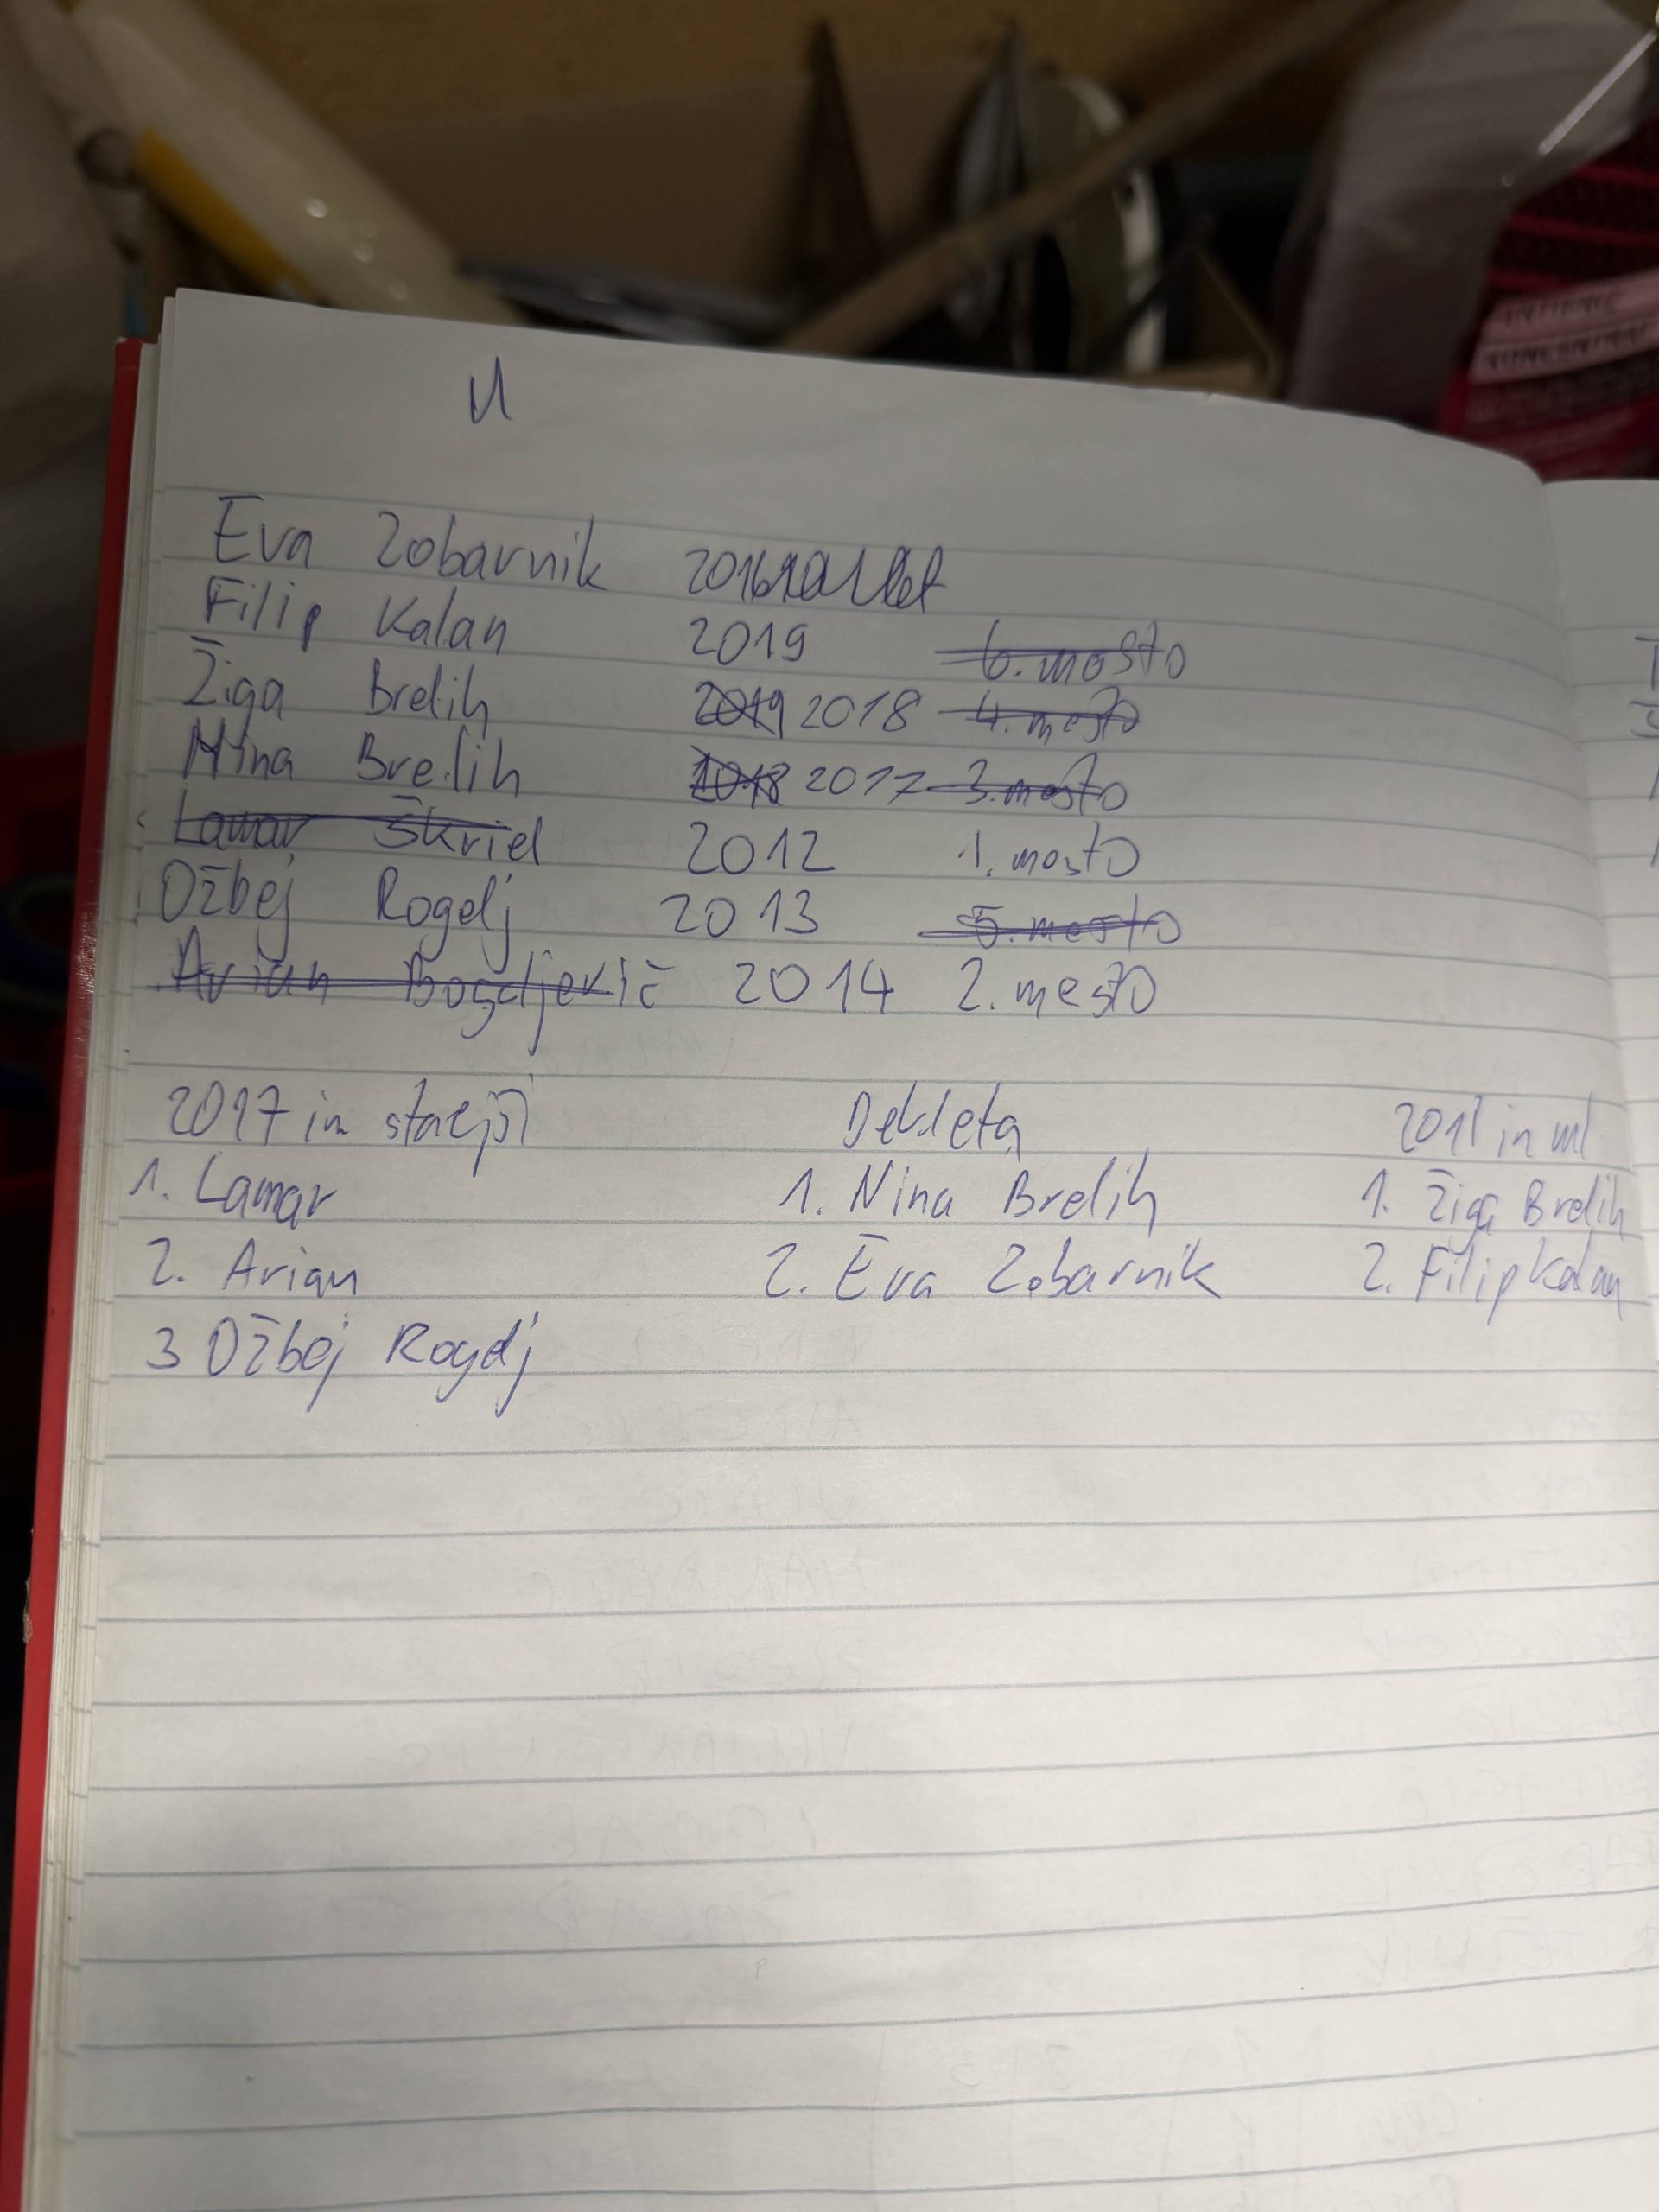 Eva Zobarnik 2016
Filip Kalan 2019 6. mesto
Žiga Brelih 2019 2018 4. mesto
Nina Brelih 2018 2017 3. mesto
Lamar Škriel 2012 1. mesto
Ožbej Rogelj 2013 5. mesto
Arian Bogdjevič 2014 2. mesto
2017 in starejši Dekleta 2018 in ml
1. Lamar 1. Nina Brelih 1. Žiga Brelih
2. Arian 2. Eva Zobarnik 2. Filip Kalan
3 Ožbej Rogelj